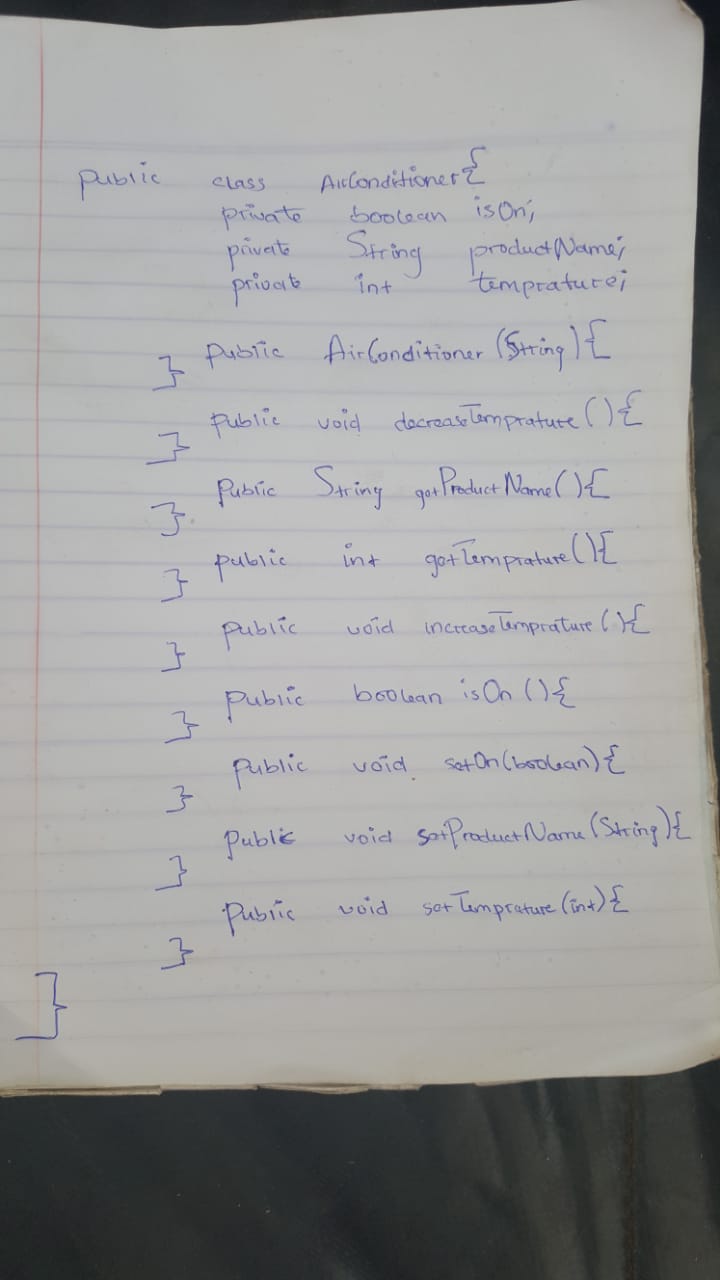 public class AirConditioner{
private boolean isOn;
private String productName;
private int temprature;
public AirConditioner (String){
}
public void decreaseTemprature (){
}
public String getProductName(){
}
public int getTemprature(){
}
public void increaseTemprature (){
}
public boolean isOn (){
}
public void setOn(boolean){
}
public void setProductName(String){
}
public void setTemprature(int){
}
}